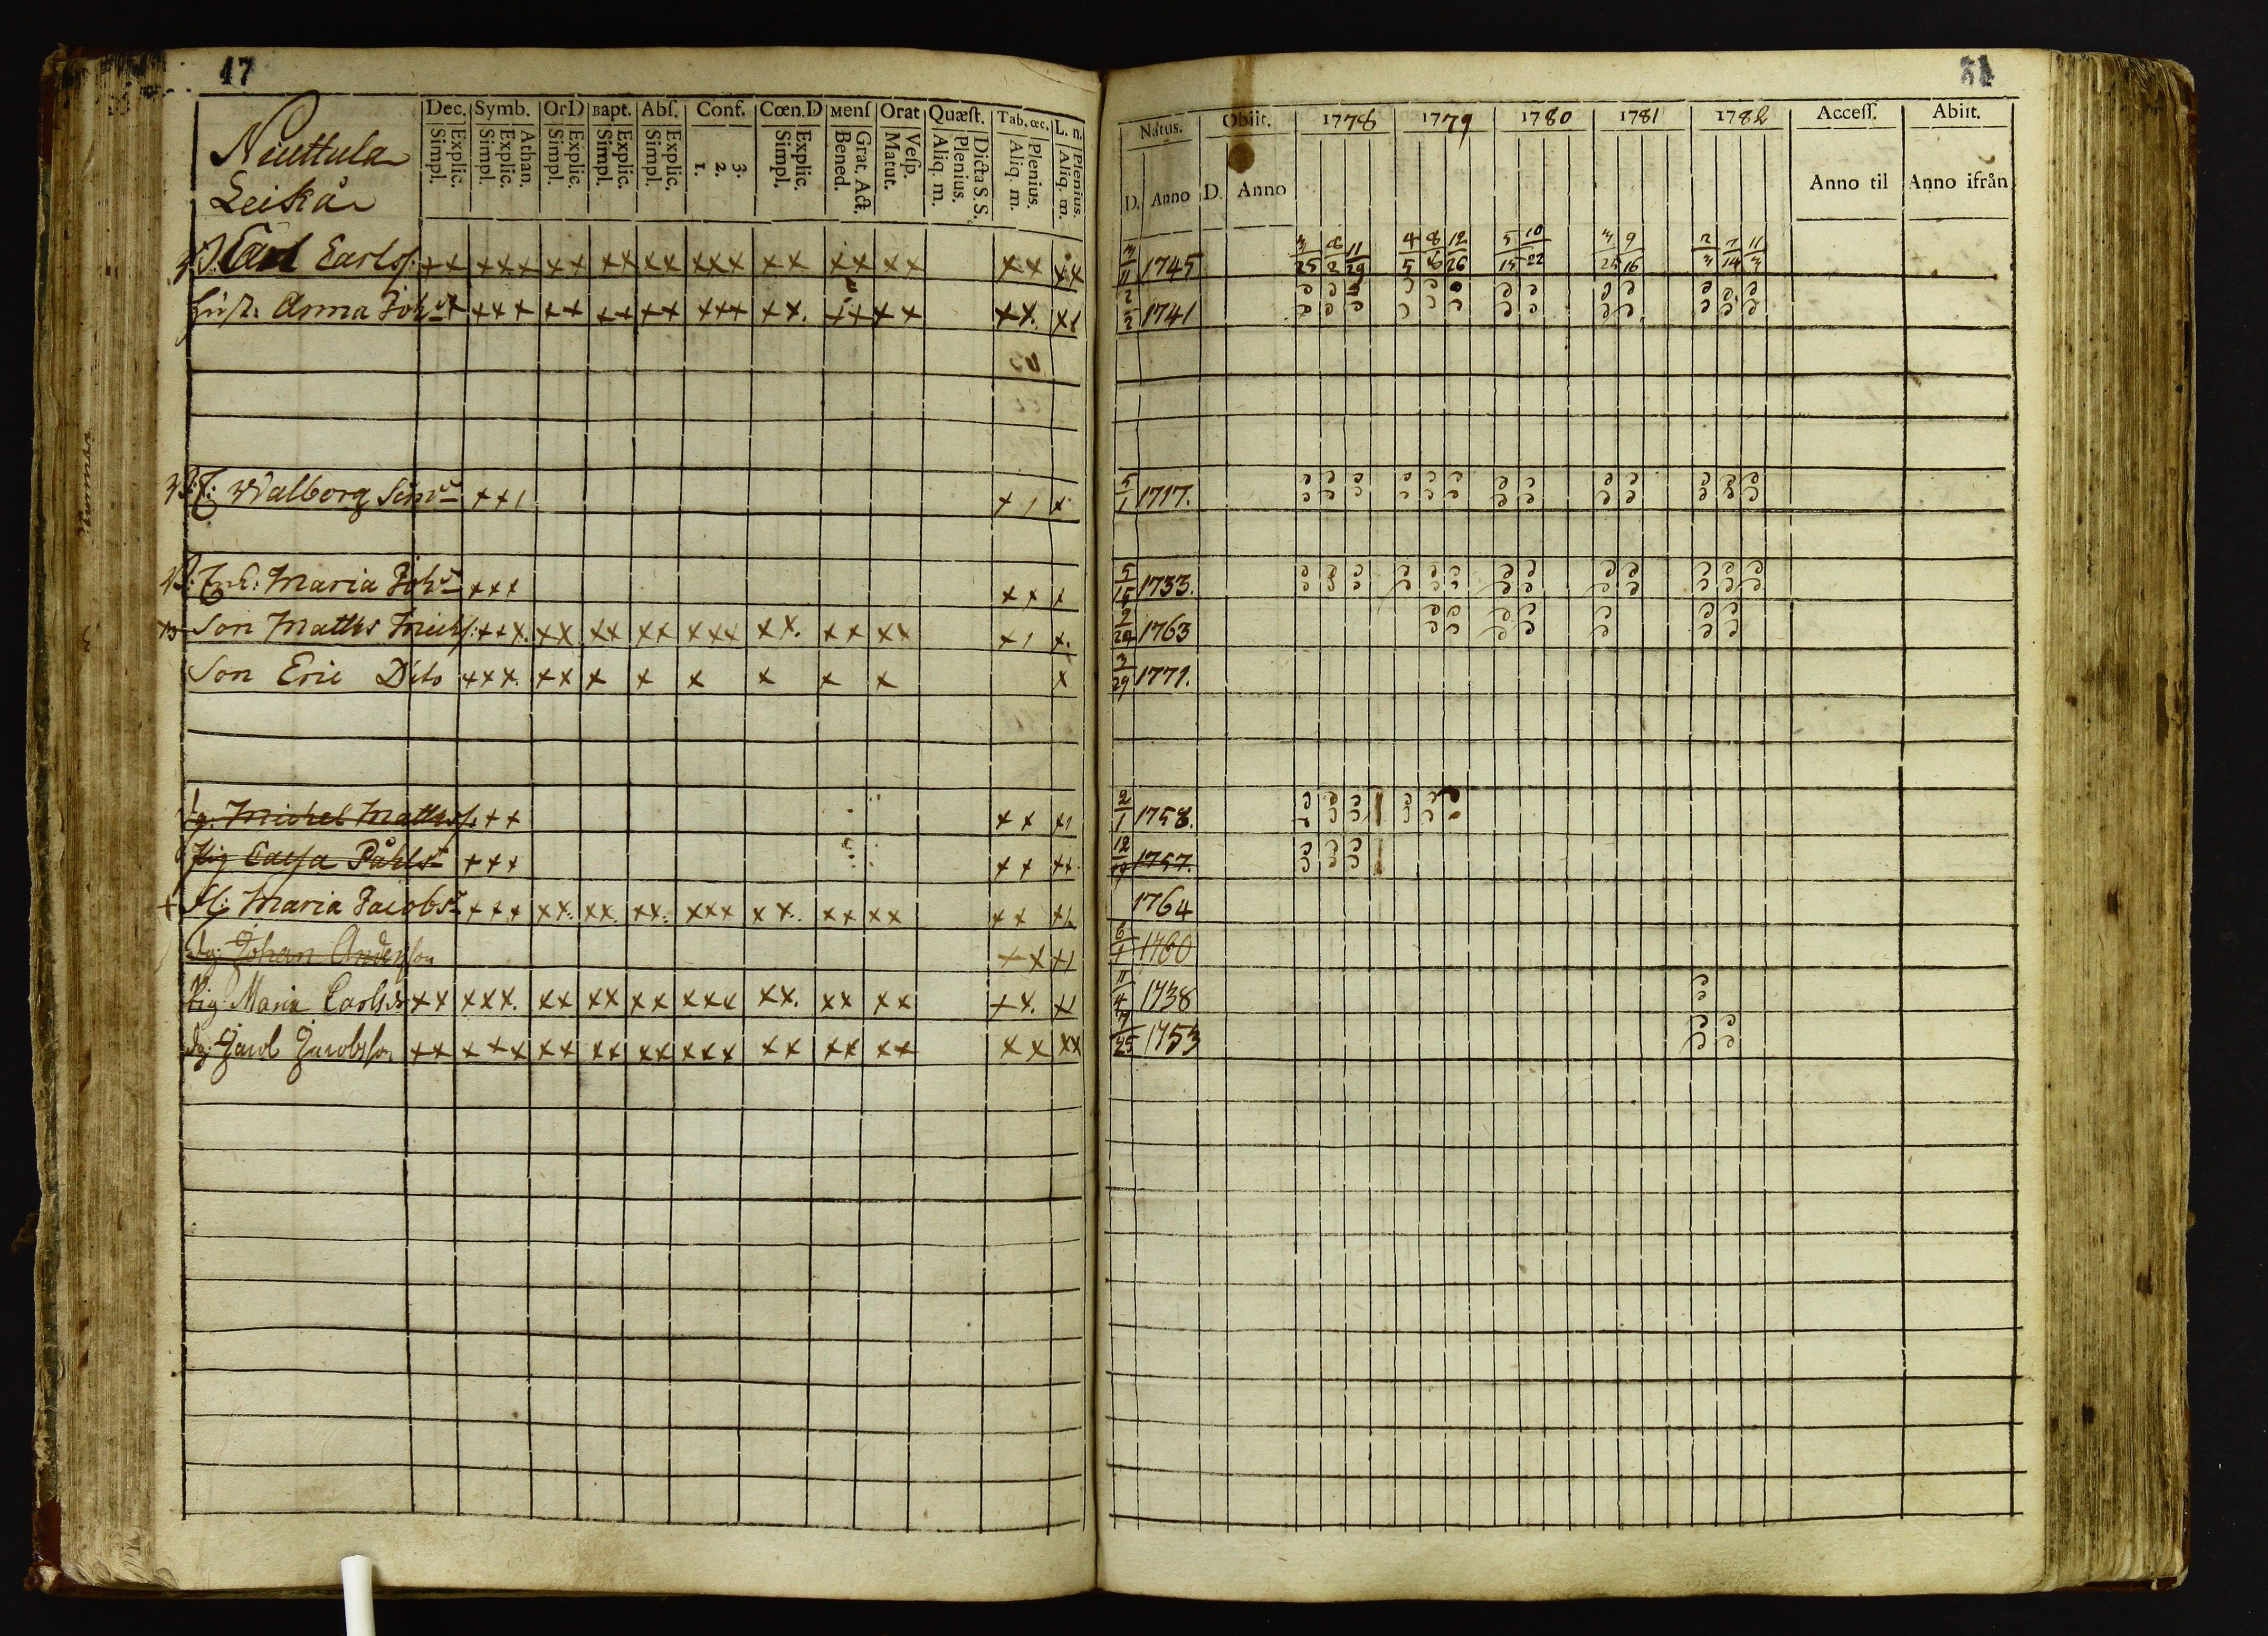 47
Niuttula
Leikar
Dec. Symb. OrD Bapt. Abſ. Conf. Cœn.D Menſ Orat Quæſt. Tab. &c. L. n.
Explic. Simpl. Athan. Explic. Simpl. Explic. Simpl. Explic. Simpl. Explic. Simpl. 3. 2. 1. Explic. Simpl. Grat. Act. Bened. Veſp. Matut. Dicta S. S. Plenius. Aliq. m. Plenius. Aliq. m. Plenius. Aliq. m.
Carl Carlsſ:
Huſt: Anna Joh
Walborg Simd
Enk: Maria Johd
Son Matths Michſ:
Son Eric Dito
Dg: Michel Mattsſ.
Pig Cajsa Påhlsd
Fl: Maria Jacobsd
Dg: Johan Andersson
Pig: Maria Carlsdr
Dg: Jacob Jacobsson
31
Natus. Obiit. 1778 1779 1780 1781 1782 Acceſſ. Abiit.
D. Anno D. Anno Anno til Anno ifrån
3/11 1745 3/25 8/2 11/29 4/5 8/6 12/26 5/15 10/22 3/25 9/16 2/3 7/14 11/3
2/2 1741
5/1 1717.
5/15 1733.
9/20 1763
3/29 1771.
2/1 1758.
12/19 1757.
1764
6/1 1760
11/4 1738
7/25 1753